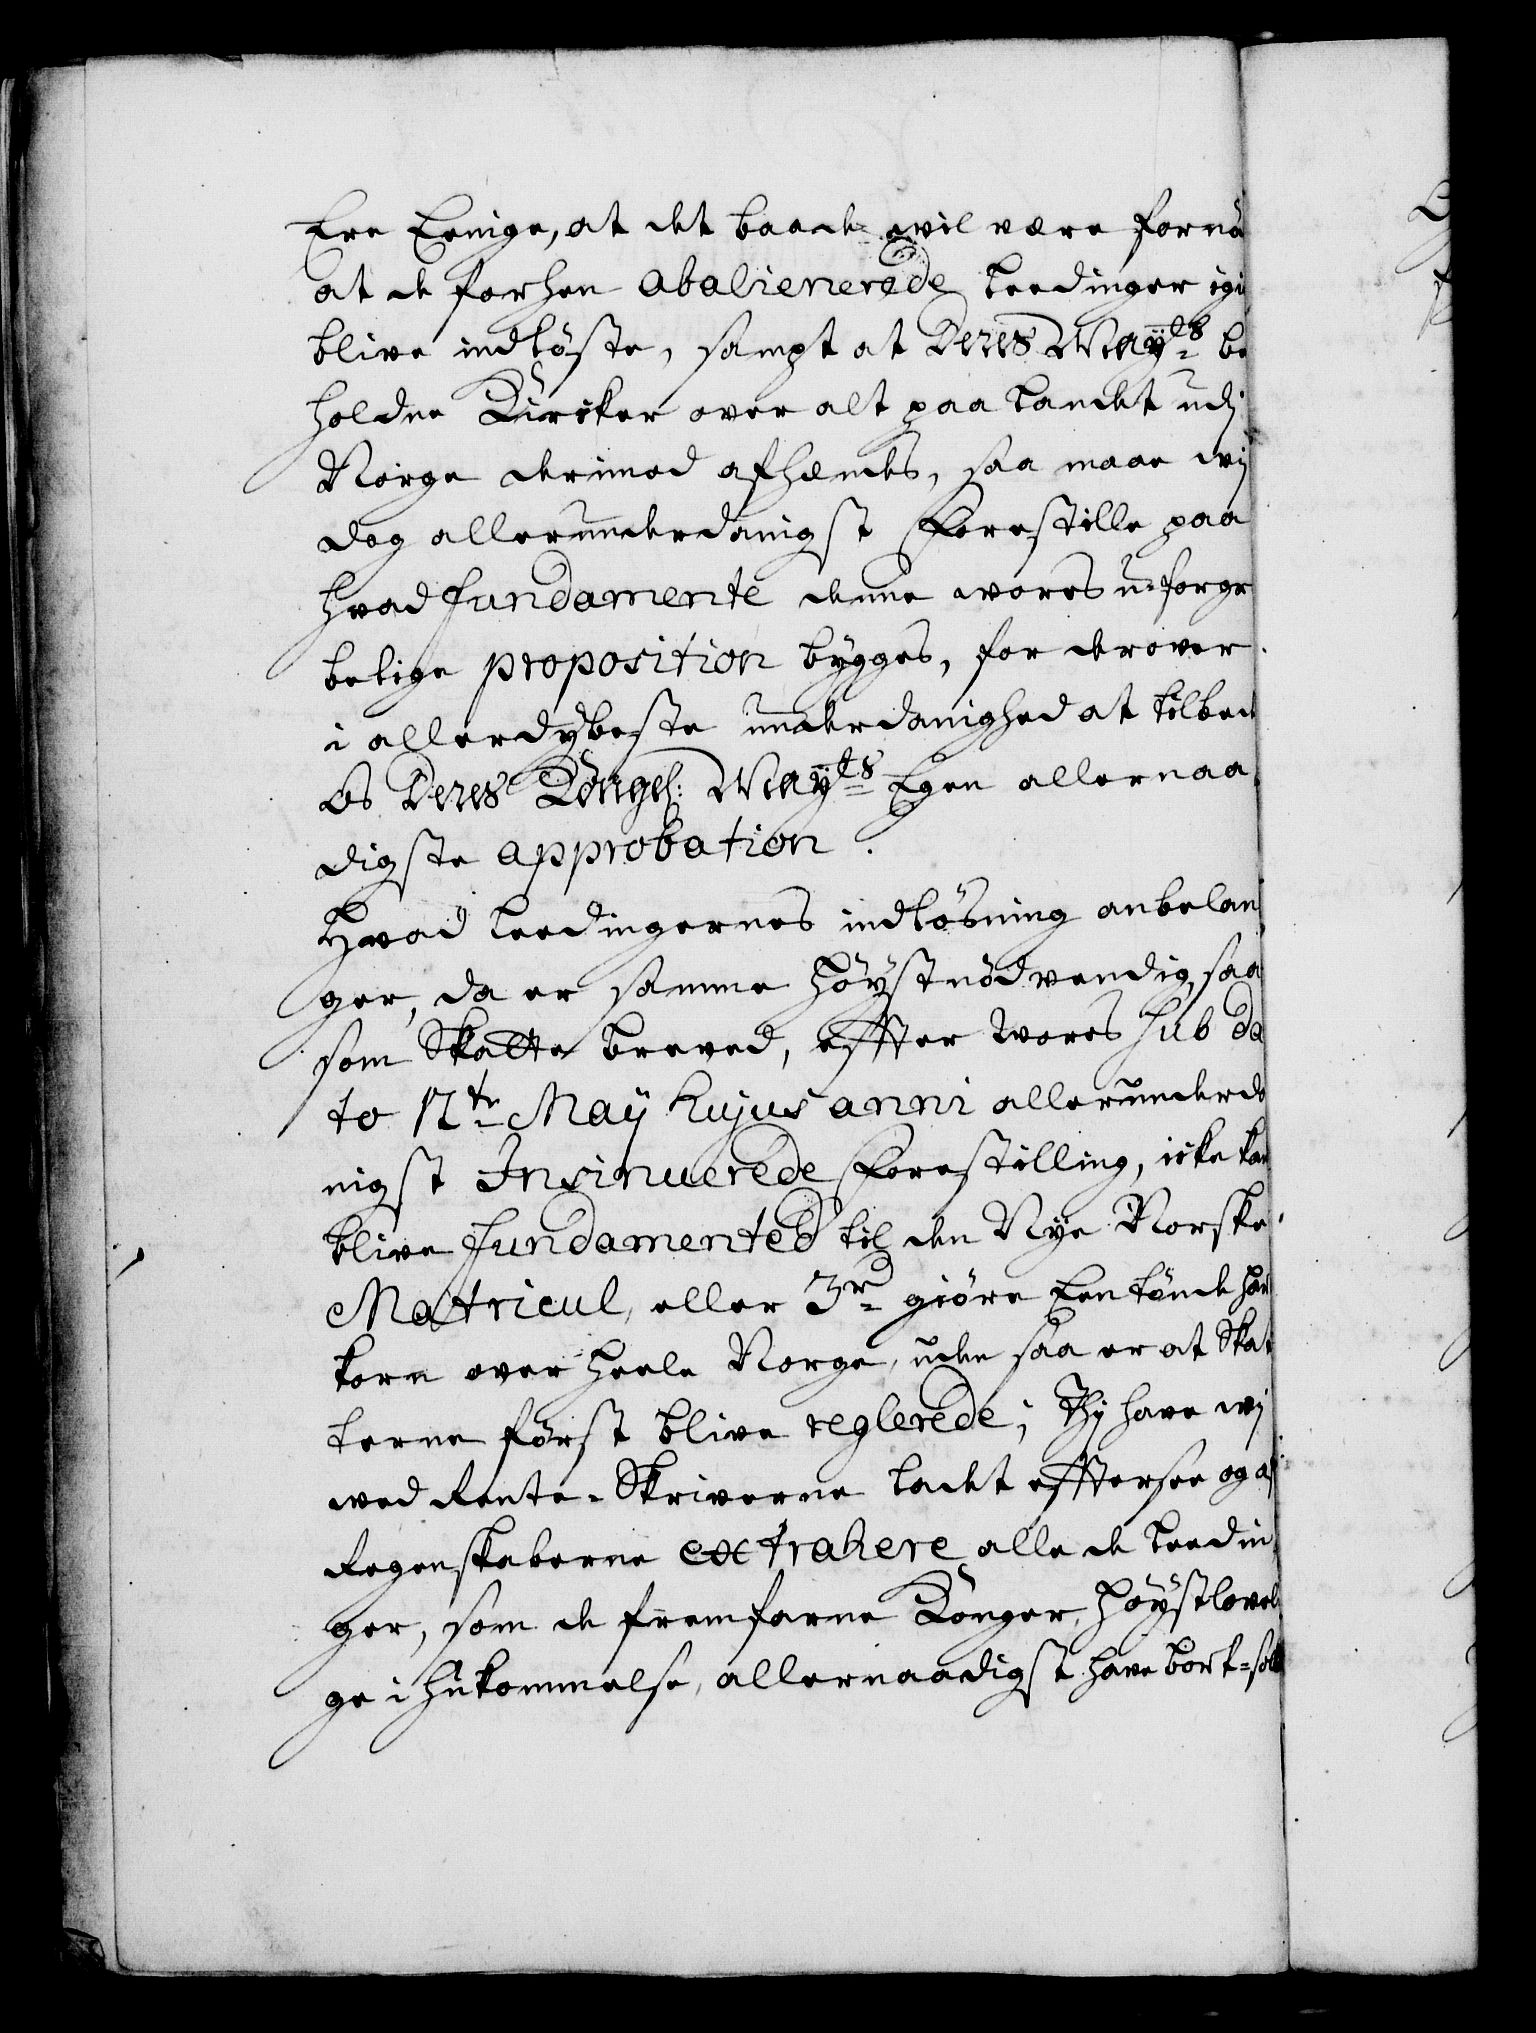 Ere Eenige, at det baade wil være fornø
at de forhen abalienerede Leedinger igi
blive indløste, sampt at Deres May:ts be
holdne Kircker over alt paa Landet udj
Norge derimod afhændes, saa maae wij
dog allerunderdanigst Forestille paa
hvad fundamente denne wores u-forgr
belige proposition bygges, for derover
i allerdybeste underdanighed at tilbede
Os Deres Kongel: May:ts Egen allernaa
digste approbation.
Hvad Leedingernes indløsning anbelan
ger, da er samme høyst nødvendig, saa
som Skatte breved, effter Wores Sub da
to 12te May hujus anni allerunderda
nigst Insinuerede Forestilling, icke kan
blive fundamented til den Nye Norske
Matricul, eller 3rd giøre Een tønde har
korn over heele Norge, uden saa er at Skat
terne først blive reglerede; Thj have wj
wed Rente-Skriverne ladet efftersee og af
Regenskaberne extrahere alle de Leedin
ger, som de fremfarne Konger, høystlovel
ge i hukommelse, allernaadigst have bort-sol